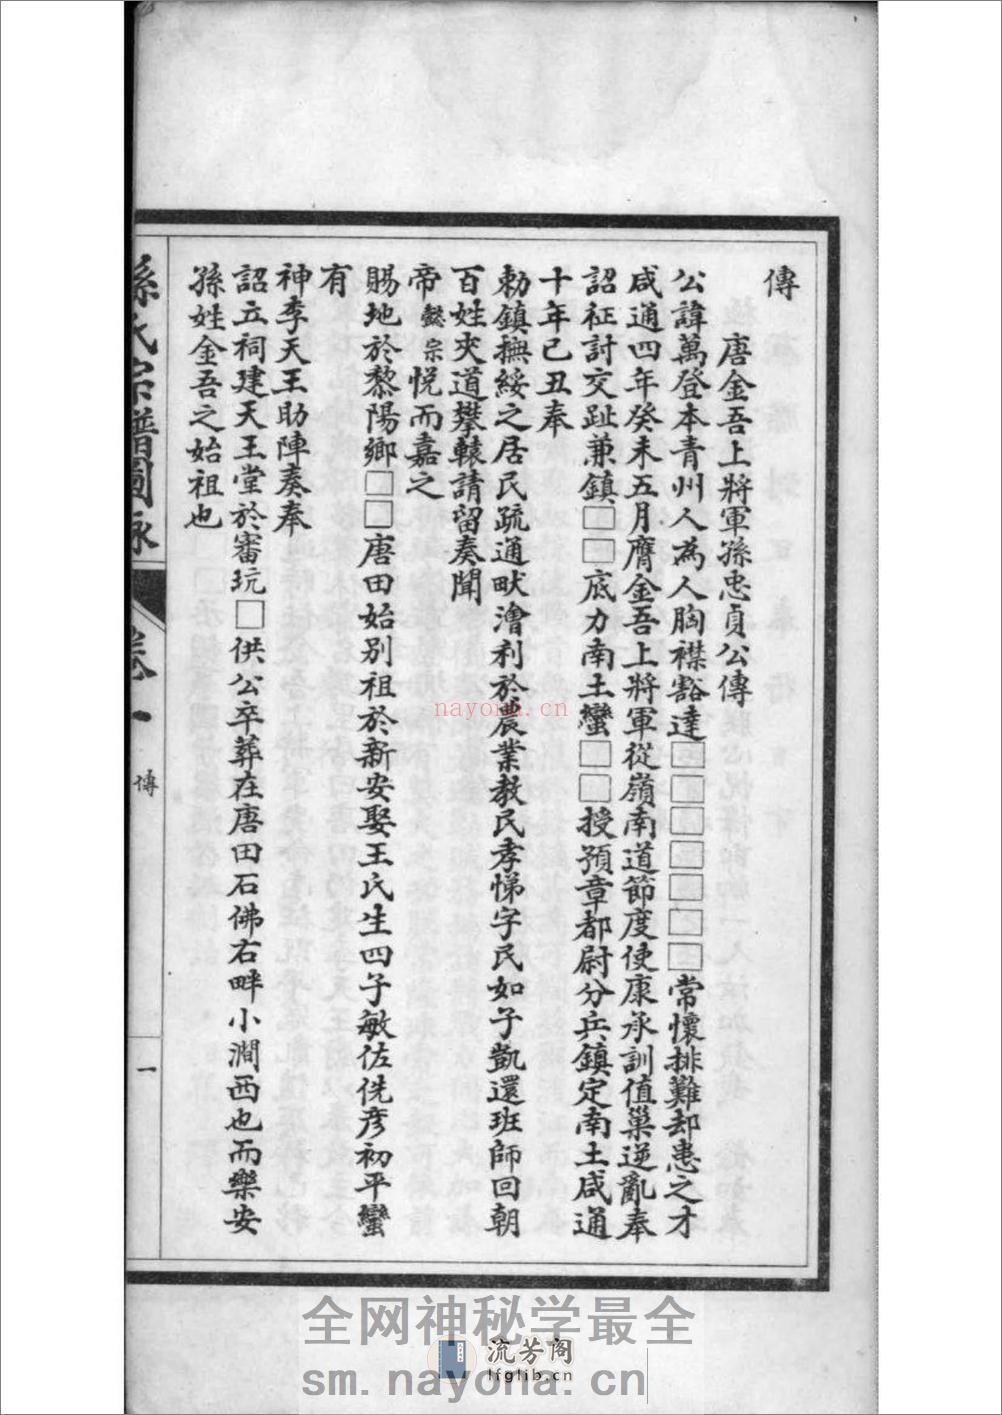 傳
唐金吾上將軍孫忠貞公傳
公諱萬登本青州人為人胸襟豁達□□□□□□常懷排難却患之才
咸通四年癸未五月膺金吾上將軍從嶺南道節度使康承訓值巢逆亂奉
詔征討交趾兼鎮□□底力南土蠻□□授預章都尉分兵鎮定南土咸通
十年己丑奉
勅鎮撫綏之居民疏通畎澮利於農業教民孝悌字民如子凱還班師回朝
百姓夾道攀轅請留奏聞
帝懿宗悅而嘉之
賜地於黎陽鄉□□唐田始別祖於新安娶王氏生四子敏佐侁彥初平蠻
有
神李天王助陣奏奉
詔立祠建天王堂於審玩□供公卒葬在唐田石佛右畔小澗西也而樂安
孫姓金吾之始祖也
孫氏宗譜圖詠
卷一
傳
一
nayona.cn
全网神秘学最全
流芳阁
lfglib.cn
sm.nayona.cn